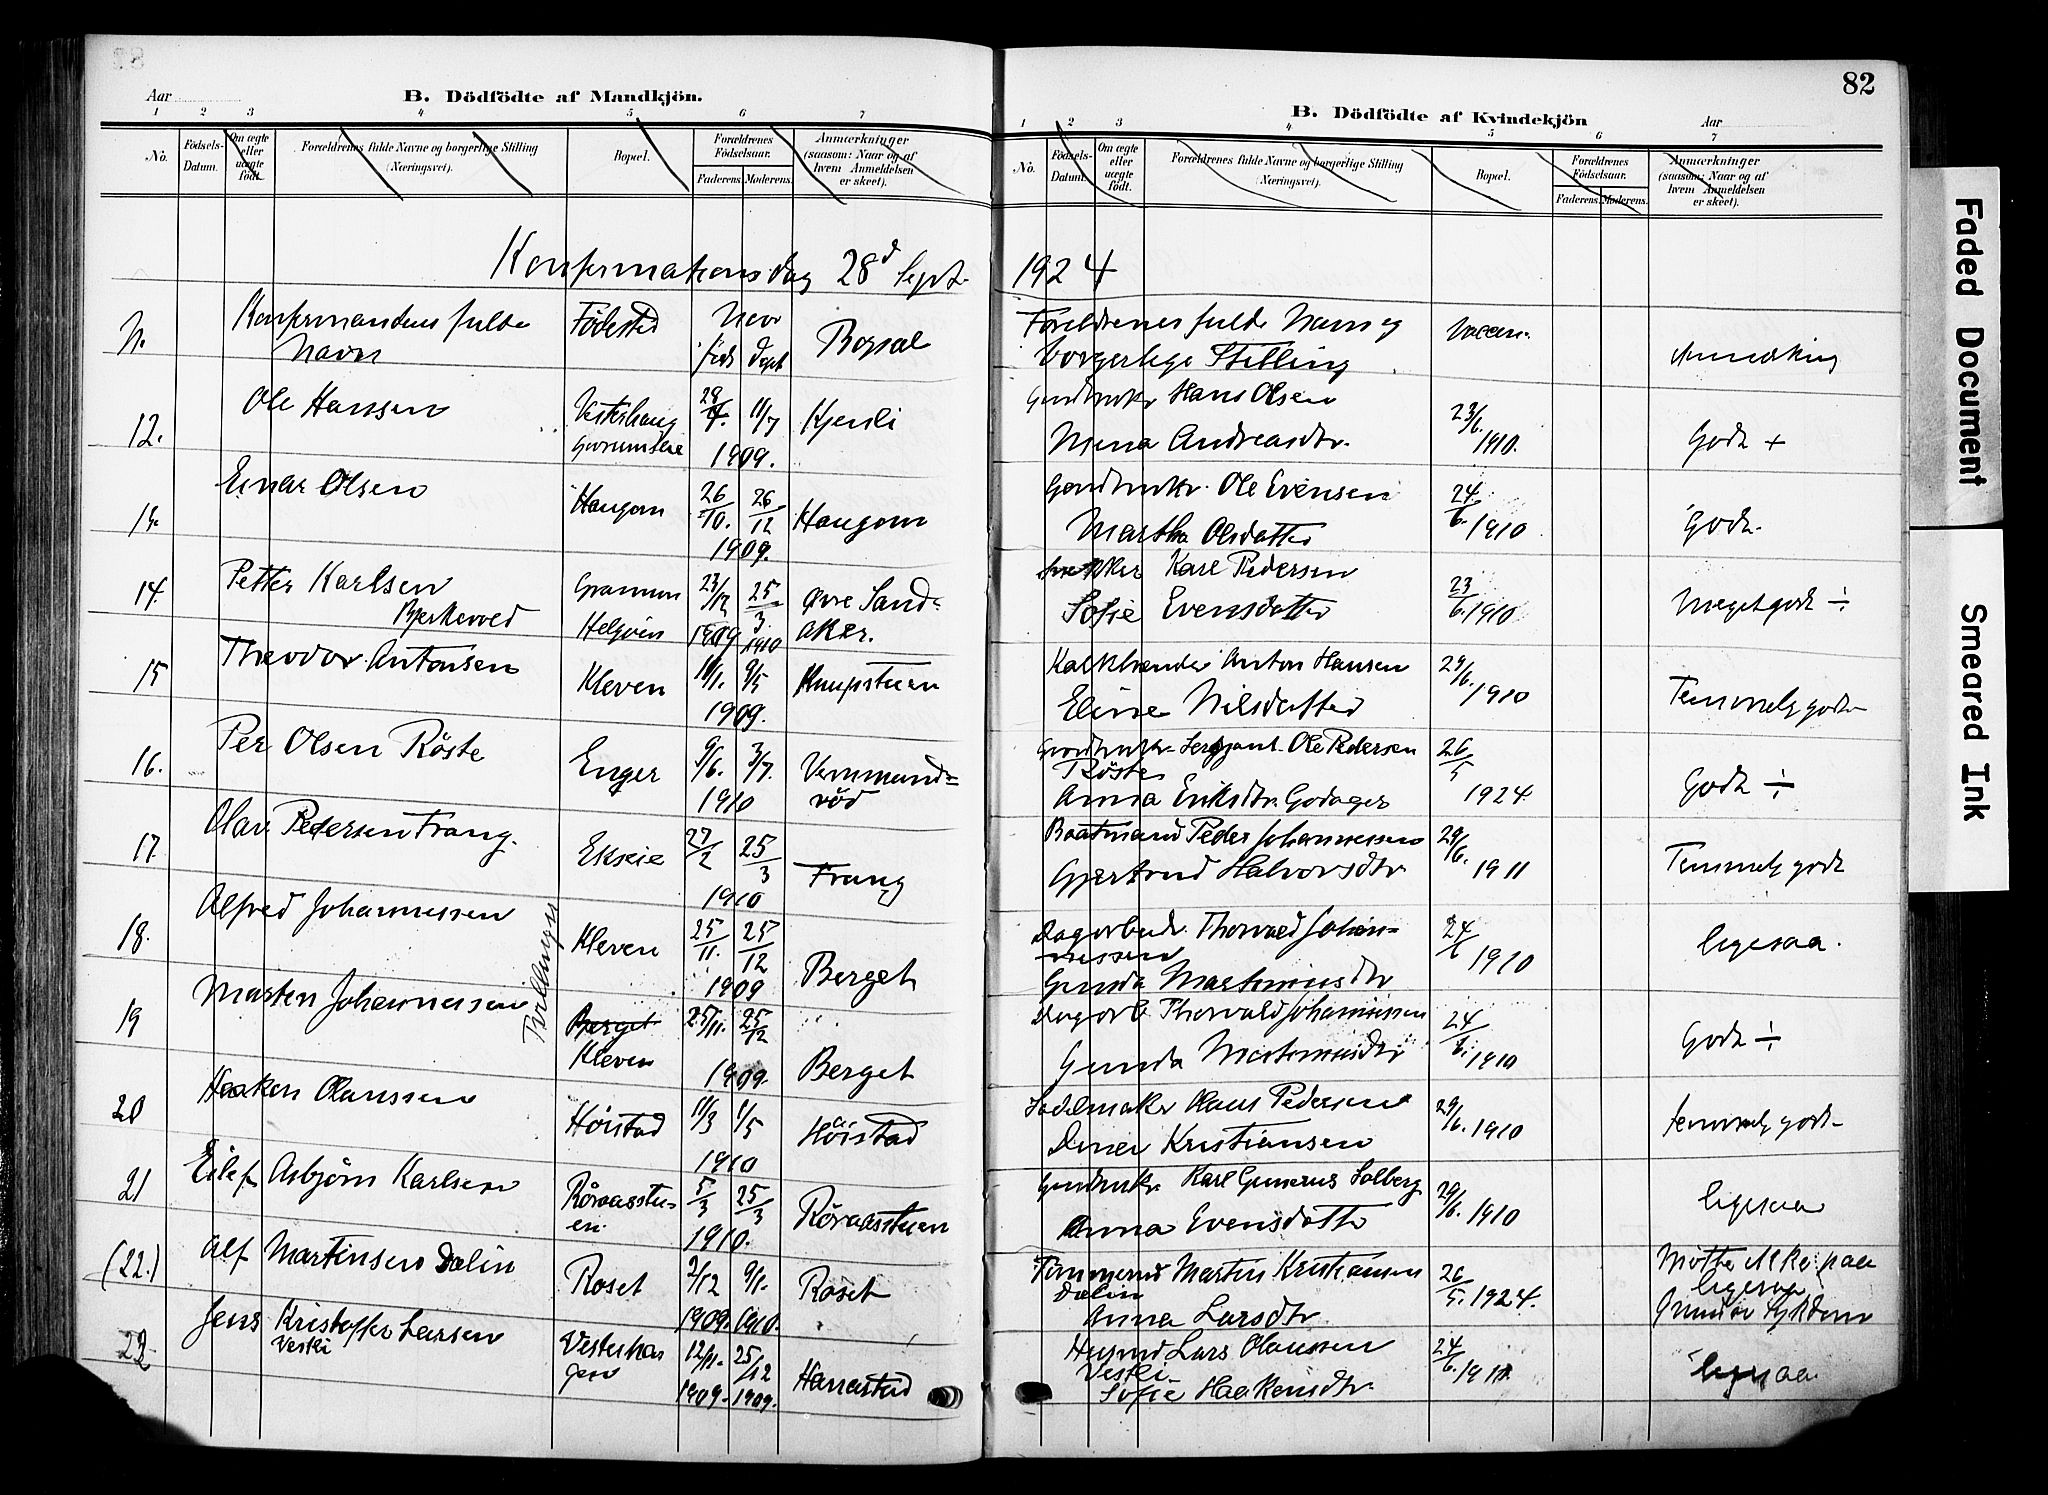 82
Aar
B. Dödfödte af Mandkjön.
1 2 3 4 5 6 7
No.
Födsels-Datum.
Om ægte eller uægte födt.
Forældrenes fulde Navne og borgerlige Stilling (Næringsvei).
Bopæl.
Forældrenes Födselsaar.
Faderens. Moderens.
Anmærkninger (saasom: Naar og af hvem Anmeldelsen er skeet).
B. Dödfödte af Kvindekjön
Aar
1 2 3 4 5 6 7
No.
Födsels-Datum.
Om ægte eller uægte födt.
Forældrenes fulde Navne og borgerlige Stilling (Næringsvei).
Bopæl.
Forældrenes Födselsaar.
Faderens. Moderens.
Anmærkninger (saasom: Naar og af hvem Anmeldelsen er skeet).
Konfirmationsdag 28d Sept. 1924
N. Konfirmantens fulde Navn Födested Naar föds döpt Bopæl Foreldrenes fulde Navn og borgerlige Stilling Vaccin. Anmerkning
12. Ole Hanssen Vesterhaug 28/4. 11/7 1909. Kjensli Gardbruker Hans Olsen
Mina Andreasdtr. 23/6. 1910. Godt +
13. Einar Olsen Haugom 26/10. 26/12 1909. Haugom Gardbruker Ole Evensen
Martha Olsdatter 24/6. 1910 Godt.
14. Petter Karlsen Bjerkevold Helgøien 23/12 1909 25/3 1910 Øvre Sand=aker. Karl Pedersen
Sofie Evensdatter 23/6. 1910 Meget godt ÷
15 Theodor Antonsen Kleven 11/1. 9/5 1909. Knupstuen Kalkbrender Anton Hansen
Eline Nilsdatter 29/6. 1910 Temmelig godt
16. Per Olsen Röste Enger 9/6. 3/7. 1910 Vernmund=röd Gardbruker Sergjant Ole Pedersen Röste
Anna Eriksdtr. Godager 26/5 1924. Godt ÷
17. Olav Pedersen Frang. Ekseie 27/2 25/3 1910 Frang Baatmand Peder Johannessen
Gjertrud Halvorsdtr 29/6. 1911 Temmelig godt
18. Alfred Johannessen Kleven 25/11. 25/12 1909 Berget Dagarbeider Thorvald Johannessen
Gunda Martinusdtr 24/6 1910 ligesaa.
Tvillinger
19 Martin Johannessen Berget Kleven 25/11. 25/12 1909. Berget Dagarb. Thorvald Johannessen
Gunda Martinusdtr 24/6. 1910 Godt ÷
20 Haakon Olaussen Höistad 11/3 1/5 1910 Höistad Sadelmaker Olaus Pedersen
Kristiansen 29/6. 1910 temmelig godt
21 Eilef Asbjörn Karlsen Röraasstuen 5/3 25/3 1910. Röraasstuen Gardbruker Karl Gunerus Solberg
Anna Evensdatter 29/6. 1910 ligesaa
(22.) Alf Martinsen Dalin Roset 2/12 1909. 9/1. 1910. Roset Tömmermd Martin Kristiansen Dalin
Anna Larsdtr. 26/5. 1924. Mötte ikke paa
ligesaa
Grund av Sykdom
23 Jens Kristoffer Larsen Vestli Vesterhaugen 12/11. 1909. 25/12 1909. Harrastad Husmd Lars Olaussen Vestli
Sofie Haakensdtr. 24/6. 1911 ligesaa
Faded Document
Smeared Ink